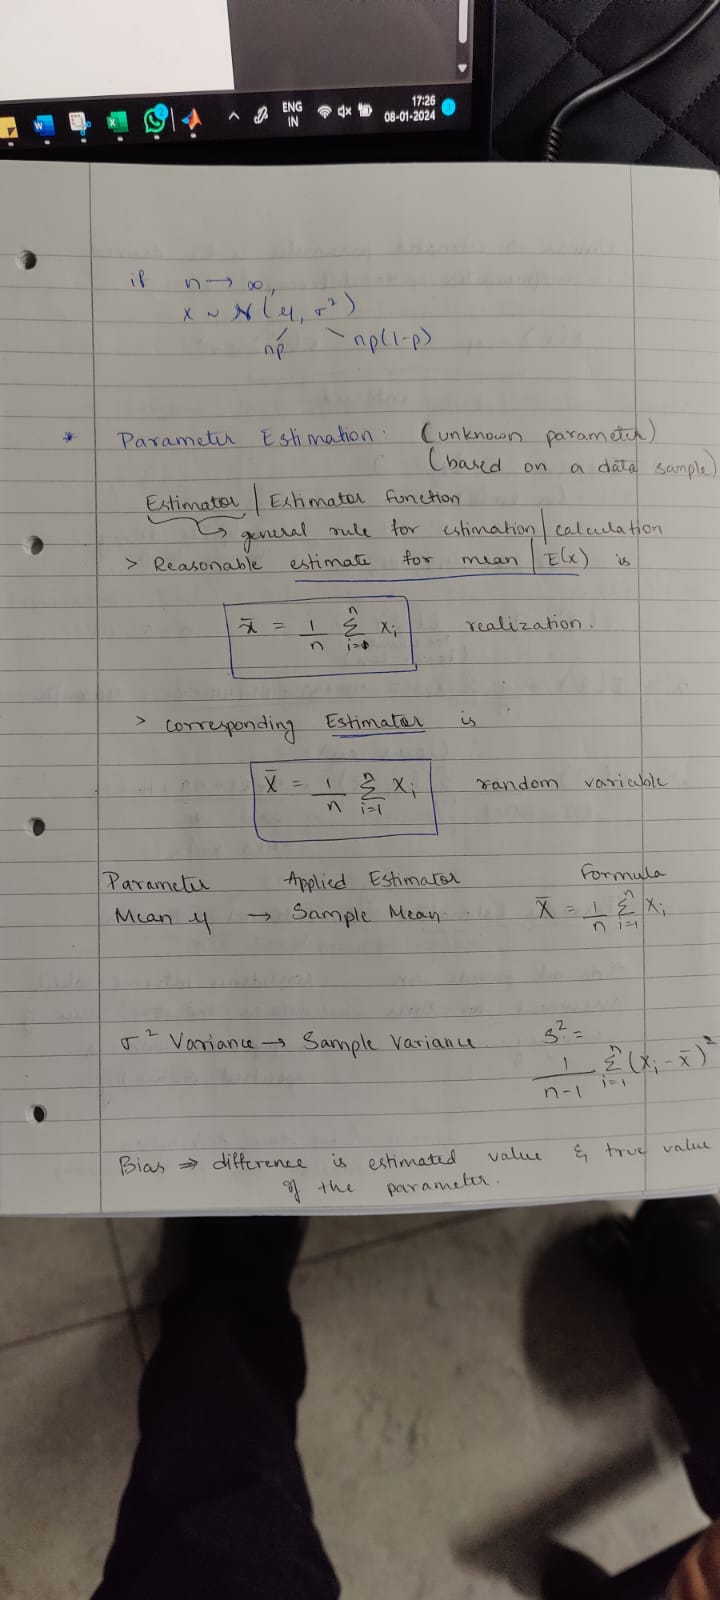 ENG
IN
17:26
08-01-2024
if n → ∞,
x ~ N(μ, σ²)
np np(1-p)
* Parameter Estimation: (unknown parameter)
(based on a data sample)
Estimator | Estimator function
↳ general rule for estimation | calculation
> Reasonable estimate for mean | E(x) is
x̄ = 1/n Σ xᵢ realization.
> corresponding Estimator is
X̄ = 1/n Σⁿᵢ₌₁ Xᵢ random variable
Parameter Applied Estimator Formula
Mean μ → Sample Mean. X̄ = 1/n Σⁿᵢ₌₁ Xᵢ
σ² Variance → Sample Variance S² =
1/n-1 Σⁿᵢ₌₁ (xᵢ - x̄)²
Bias ⇒ difference is estimated value & true value
of the parameter.